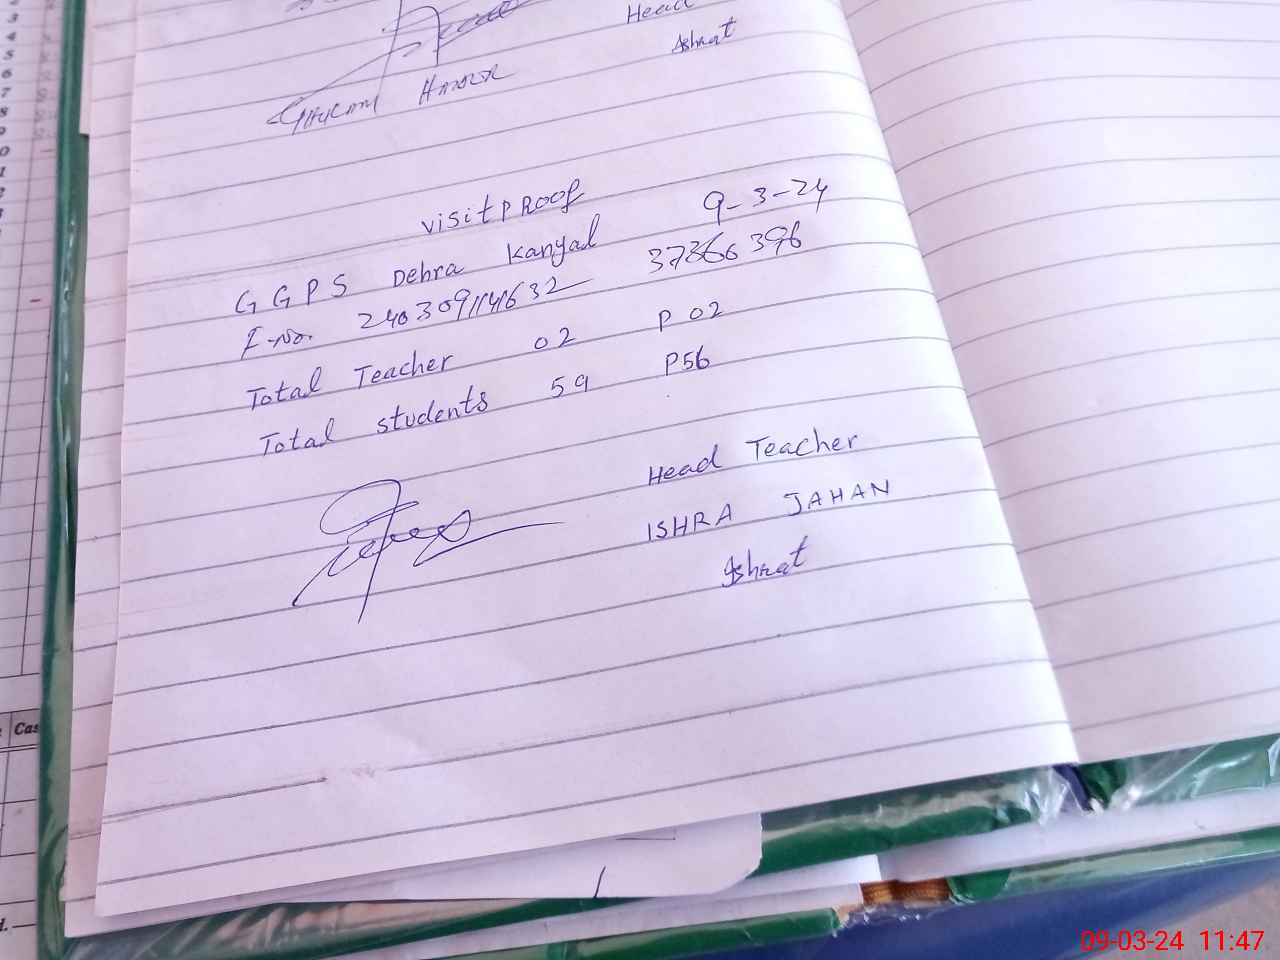 Head
Ashrat
GHULAM HAIDER
visit PROOF
9-3-24
GGPS Dehra Kanyal 37366396
I-No. 240309141632
Total Teacher 02 P 02
Total students 59 P56
Head Teacher
ISHRA JAHAN
Ishrat
Cas
09-03-24 11:47